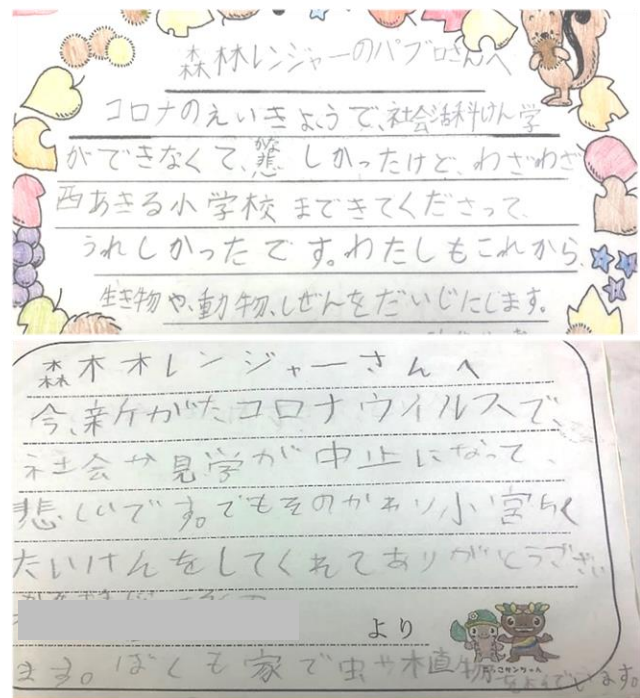 森林レンジャーのパブロさんへ
コロナのえいきょうで、社会活科けん学
ができなくて、悲しかったけど、わざわざ
かな
西あきる小学校まできてくださって、
うれしかったです。わたしもこれから、
生き物や、動物、しぜんをだいじにします。
森林レンジャーさんへ
今、新がたコロナウイルスで、
社会か見学が中止になって、
悲しいです。でもそのかわり小宮ら
たいけんをしてくれてありがとうござい
より
ます。ぼくも家で虫や植物
います。